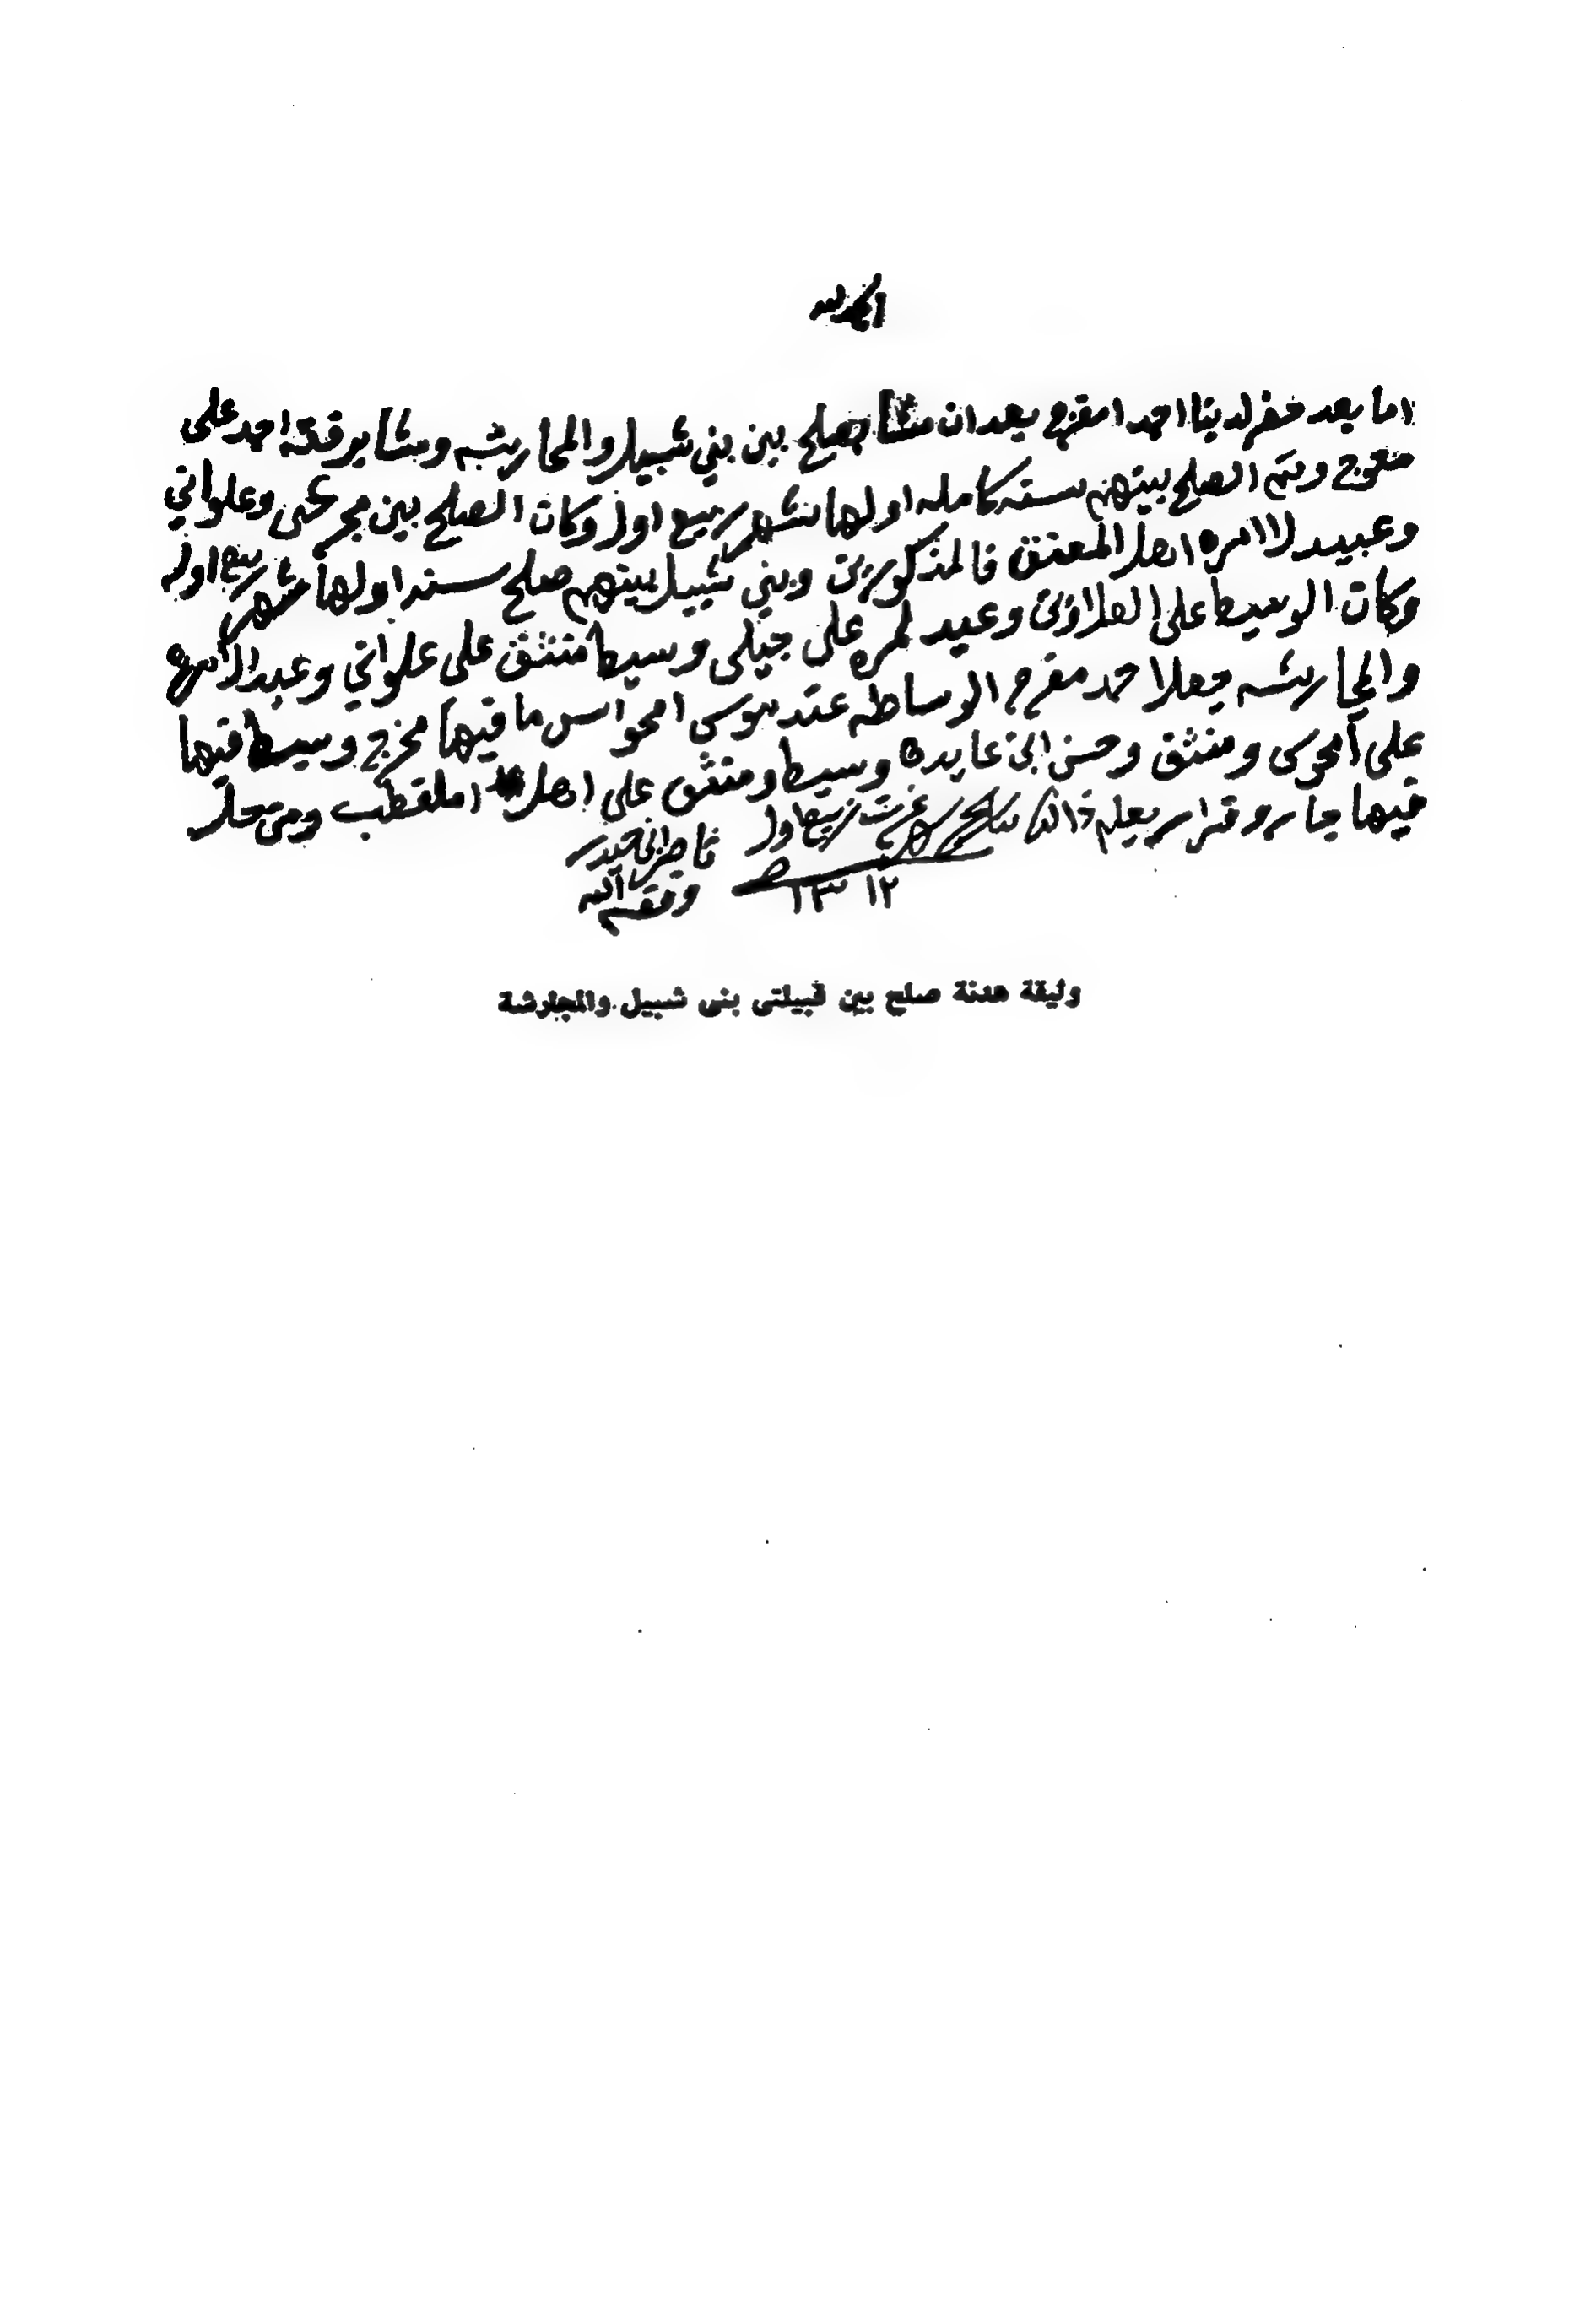 الحمد لله
اما بعد حضر لدينا احمد امفرج بعد ان مشا صلح بين بني شبيل والمجارشه ومشا برفقه احمد على
معوج وتم الصلح بينهم سنه كامله اولها شهر ربيع اول وكان الصلح بين وعلواني
وعبيد اهل فالمذكورين وبني شبيل بينهم صلح سنه اولها شهر ربيع اول
وكان الوسيط على وعبد على جبلى وسيط منثق على علواني وعبد
والمجارشه جعلا احمد مفرح الوساطه عند موسى امحواس ما فيها مخرج وسيط فيها
على ومنثق وحسن ابن عايده وسيط ومنثق على اهل املقطب ومن حل
فيها جار وقرار يعلم ذالك ربيع اول
١٣١٢
وفقه الله
وثيقة هدنة صلح بين قبيلتى بنى شبيل والمجارشة